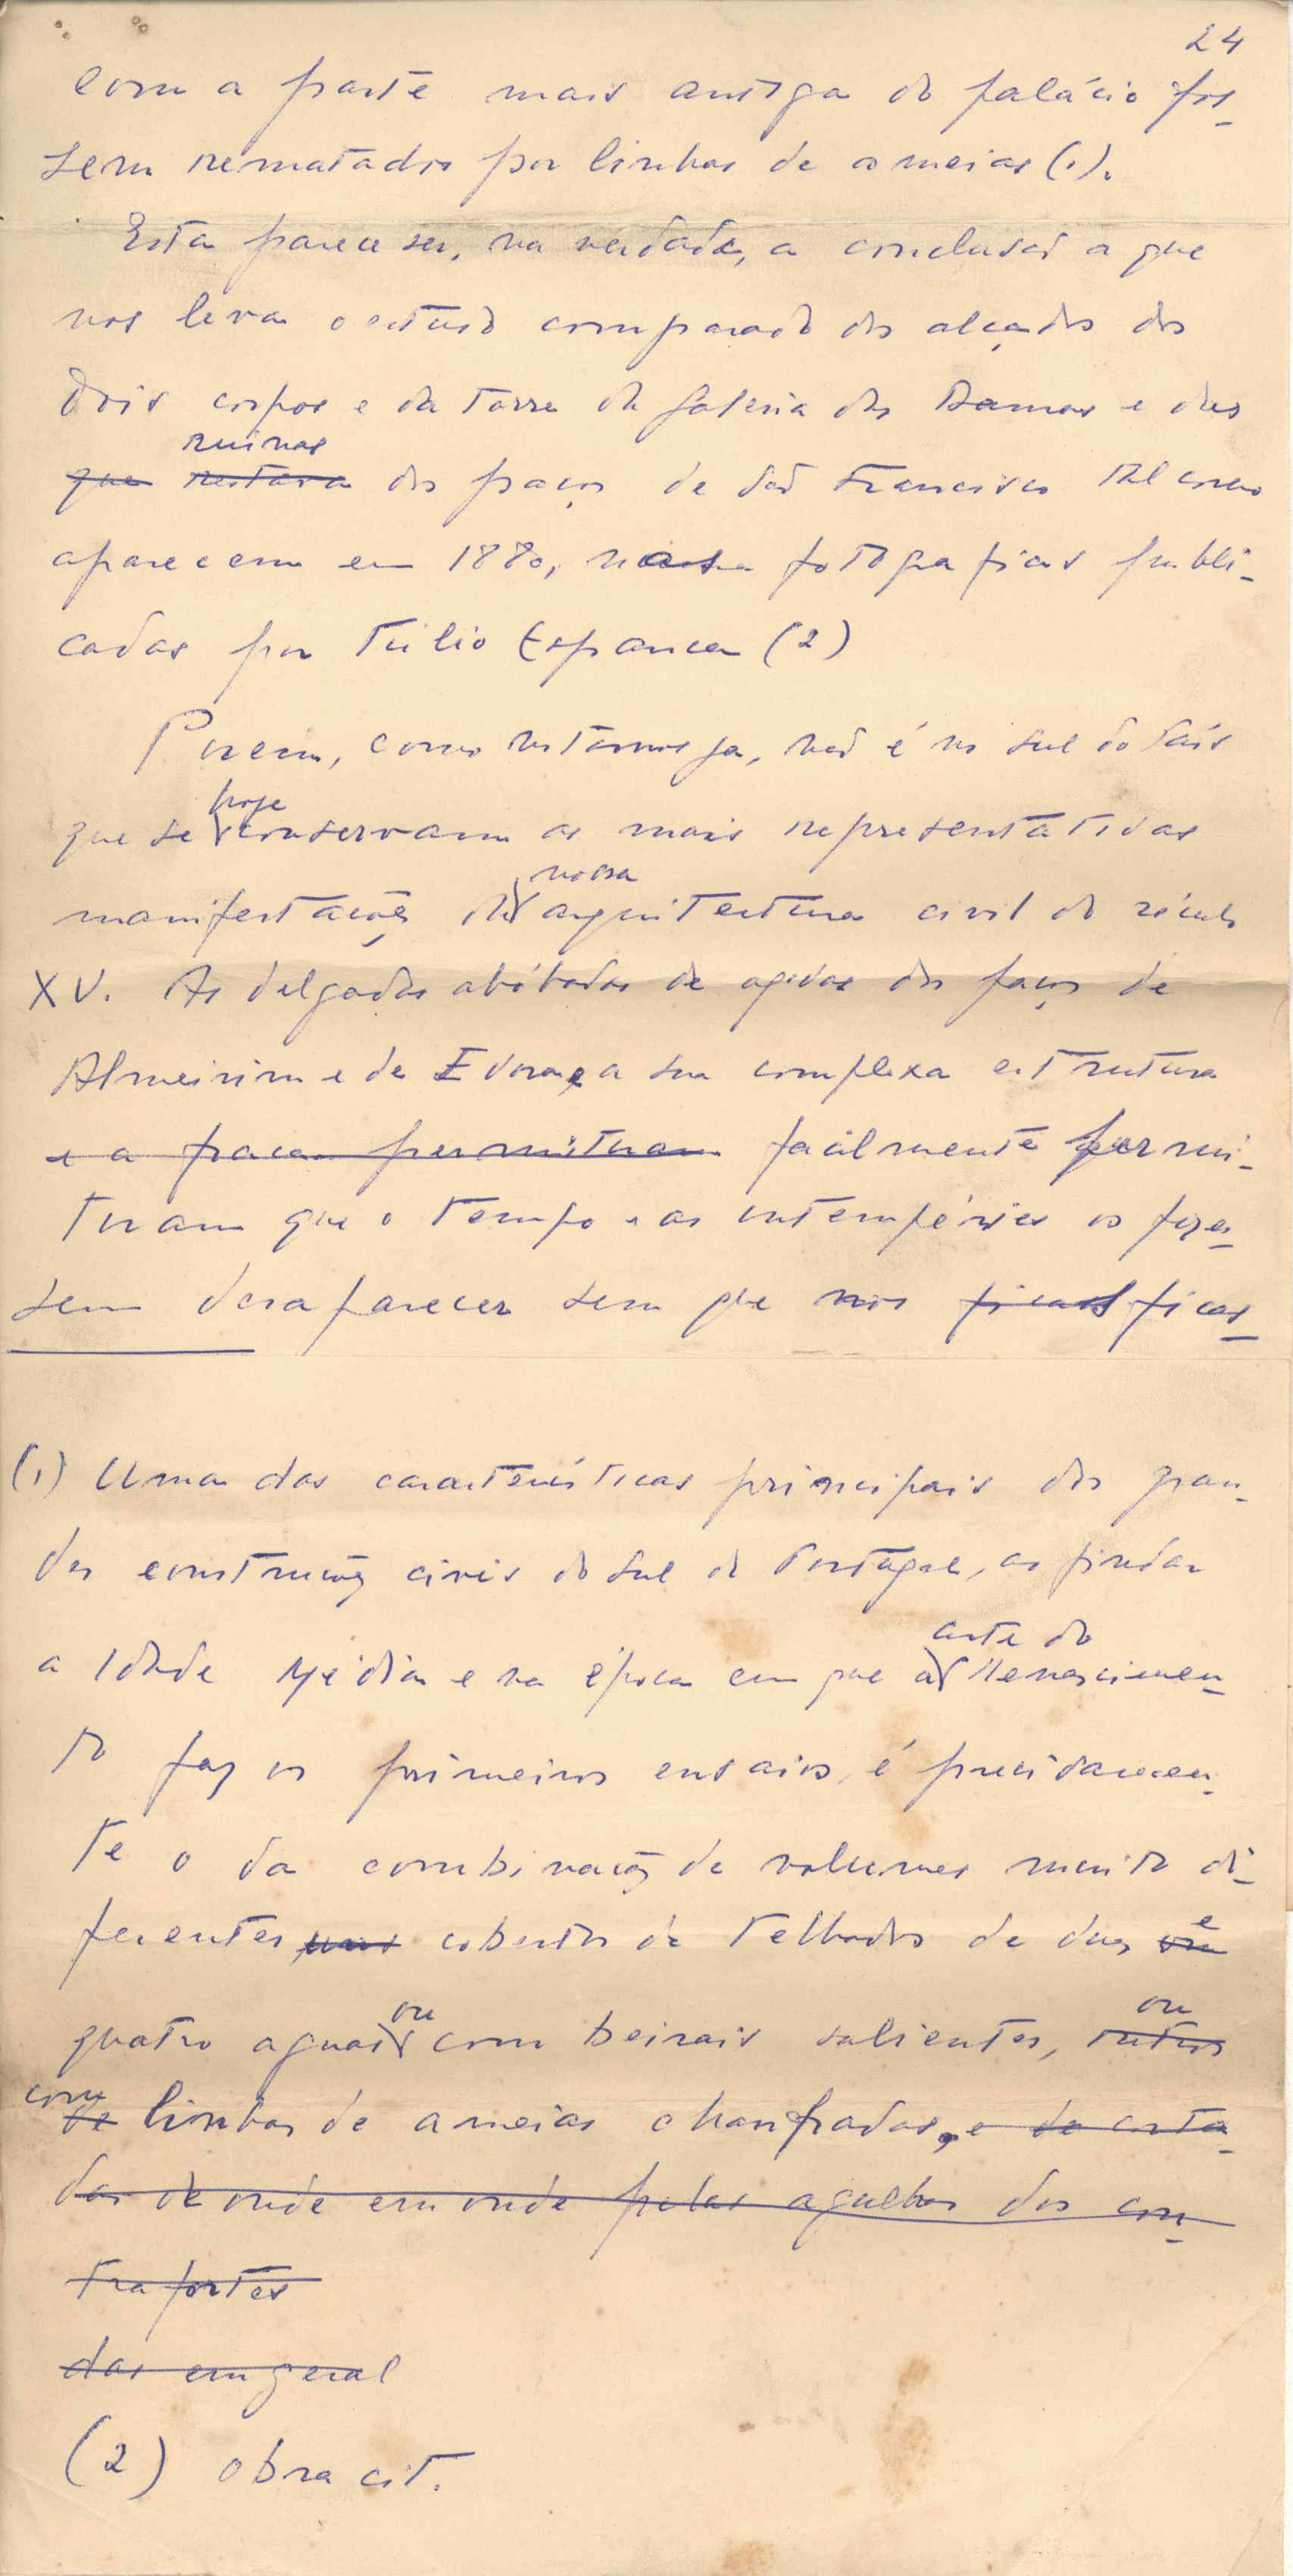 24
com a parte mais antiga do palácio fos-
sem rematados por linhas de ameias (1).
Esta parece ser, na verdade, a conclusão a que
nos leva o estudo comparado dos alçados dos
dois corpos e da torre da Galeria das Damas e das
ruinas
que restava dos paços de São Francisco tal como
aparecem em 1880, nas fotografias publi-
cadas por Túlio Espanca (2)
Porem, como notamos ja, não é no sul do País
hoje
que se conservam as mais representativas
nossa
manifestações da arquitectura civil do século
XV. As delgadas abóbadas de ogivas dos paços de
Almeirim e de Evora, e a sua complexa estrutura
e a fraca permitiram facilmente permi-
tiram que o tempo e as intempéries os fizes-
sem desaparecer sem que nos ficas-
(1) Uma das características principais das gran-
des construções civis do sul de Portugal, ao findar
arte do
a Idade Média e na época em que a Renascimen-
to faz os primeiros ensaios, é precisamen-
te o da combinação de volumes muito di-
e
ferentes uns cobertos de telhados de duas ou
ou ou
quatro aguas com beirais salientes, outros
com
de linhas de ameias chanfradas, e de corta-
das de onde em onde pelas agulhas dos con-
trafortes
das em geral
(2) obra cit.